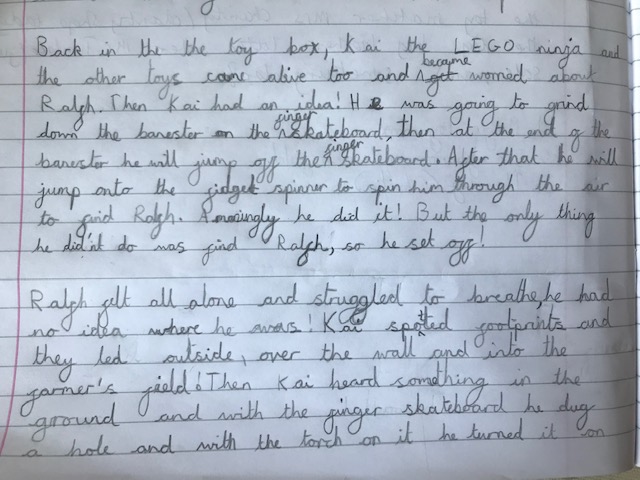 Back in the the toy box, Kai the LEGO ninja and
the other toys came alive too and became worried about
Ralph. Then Kai had an idea! He was going to grind
down the banester on the finger skateboard, then at the end of the
banester he will jump off the finger skateboard. After that he will
jump onto the fidget spinner to spin him through the air
to find Ralph. Amaningly he did it! But the only thing
he did'nt do was find Ralph, so he set off!
Ralph felt all alone and struggled to breathe, he had
no idea where he was! Kai spotted footprints and
they led outside, over the wall and into the
farmer's field! Then Kai heard something in the
ground and with the finger skateboard he dug
a hole and with the torch on it he turned it on